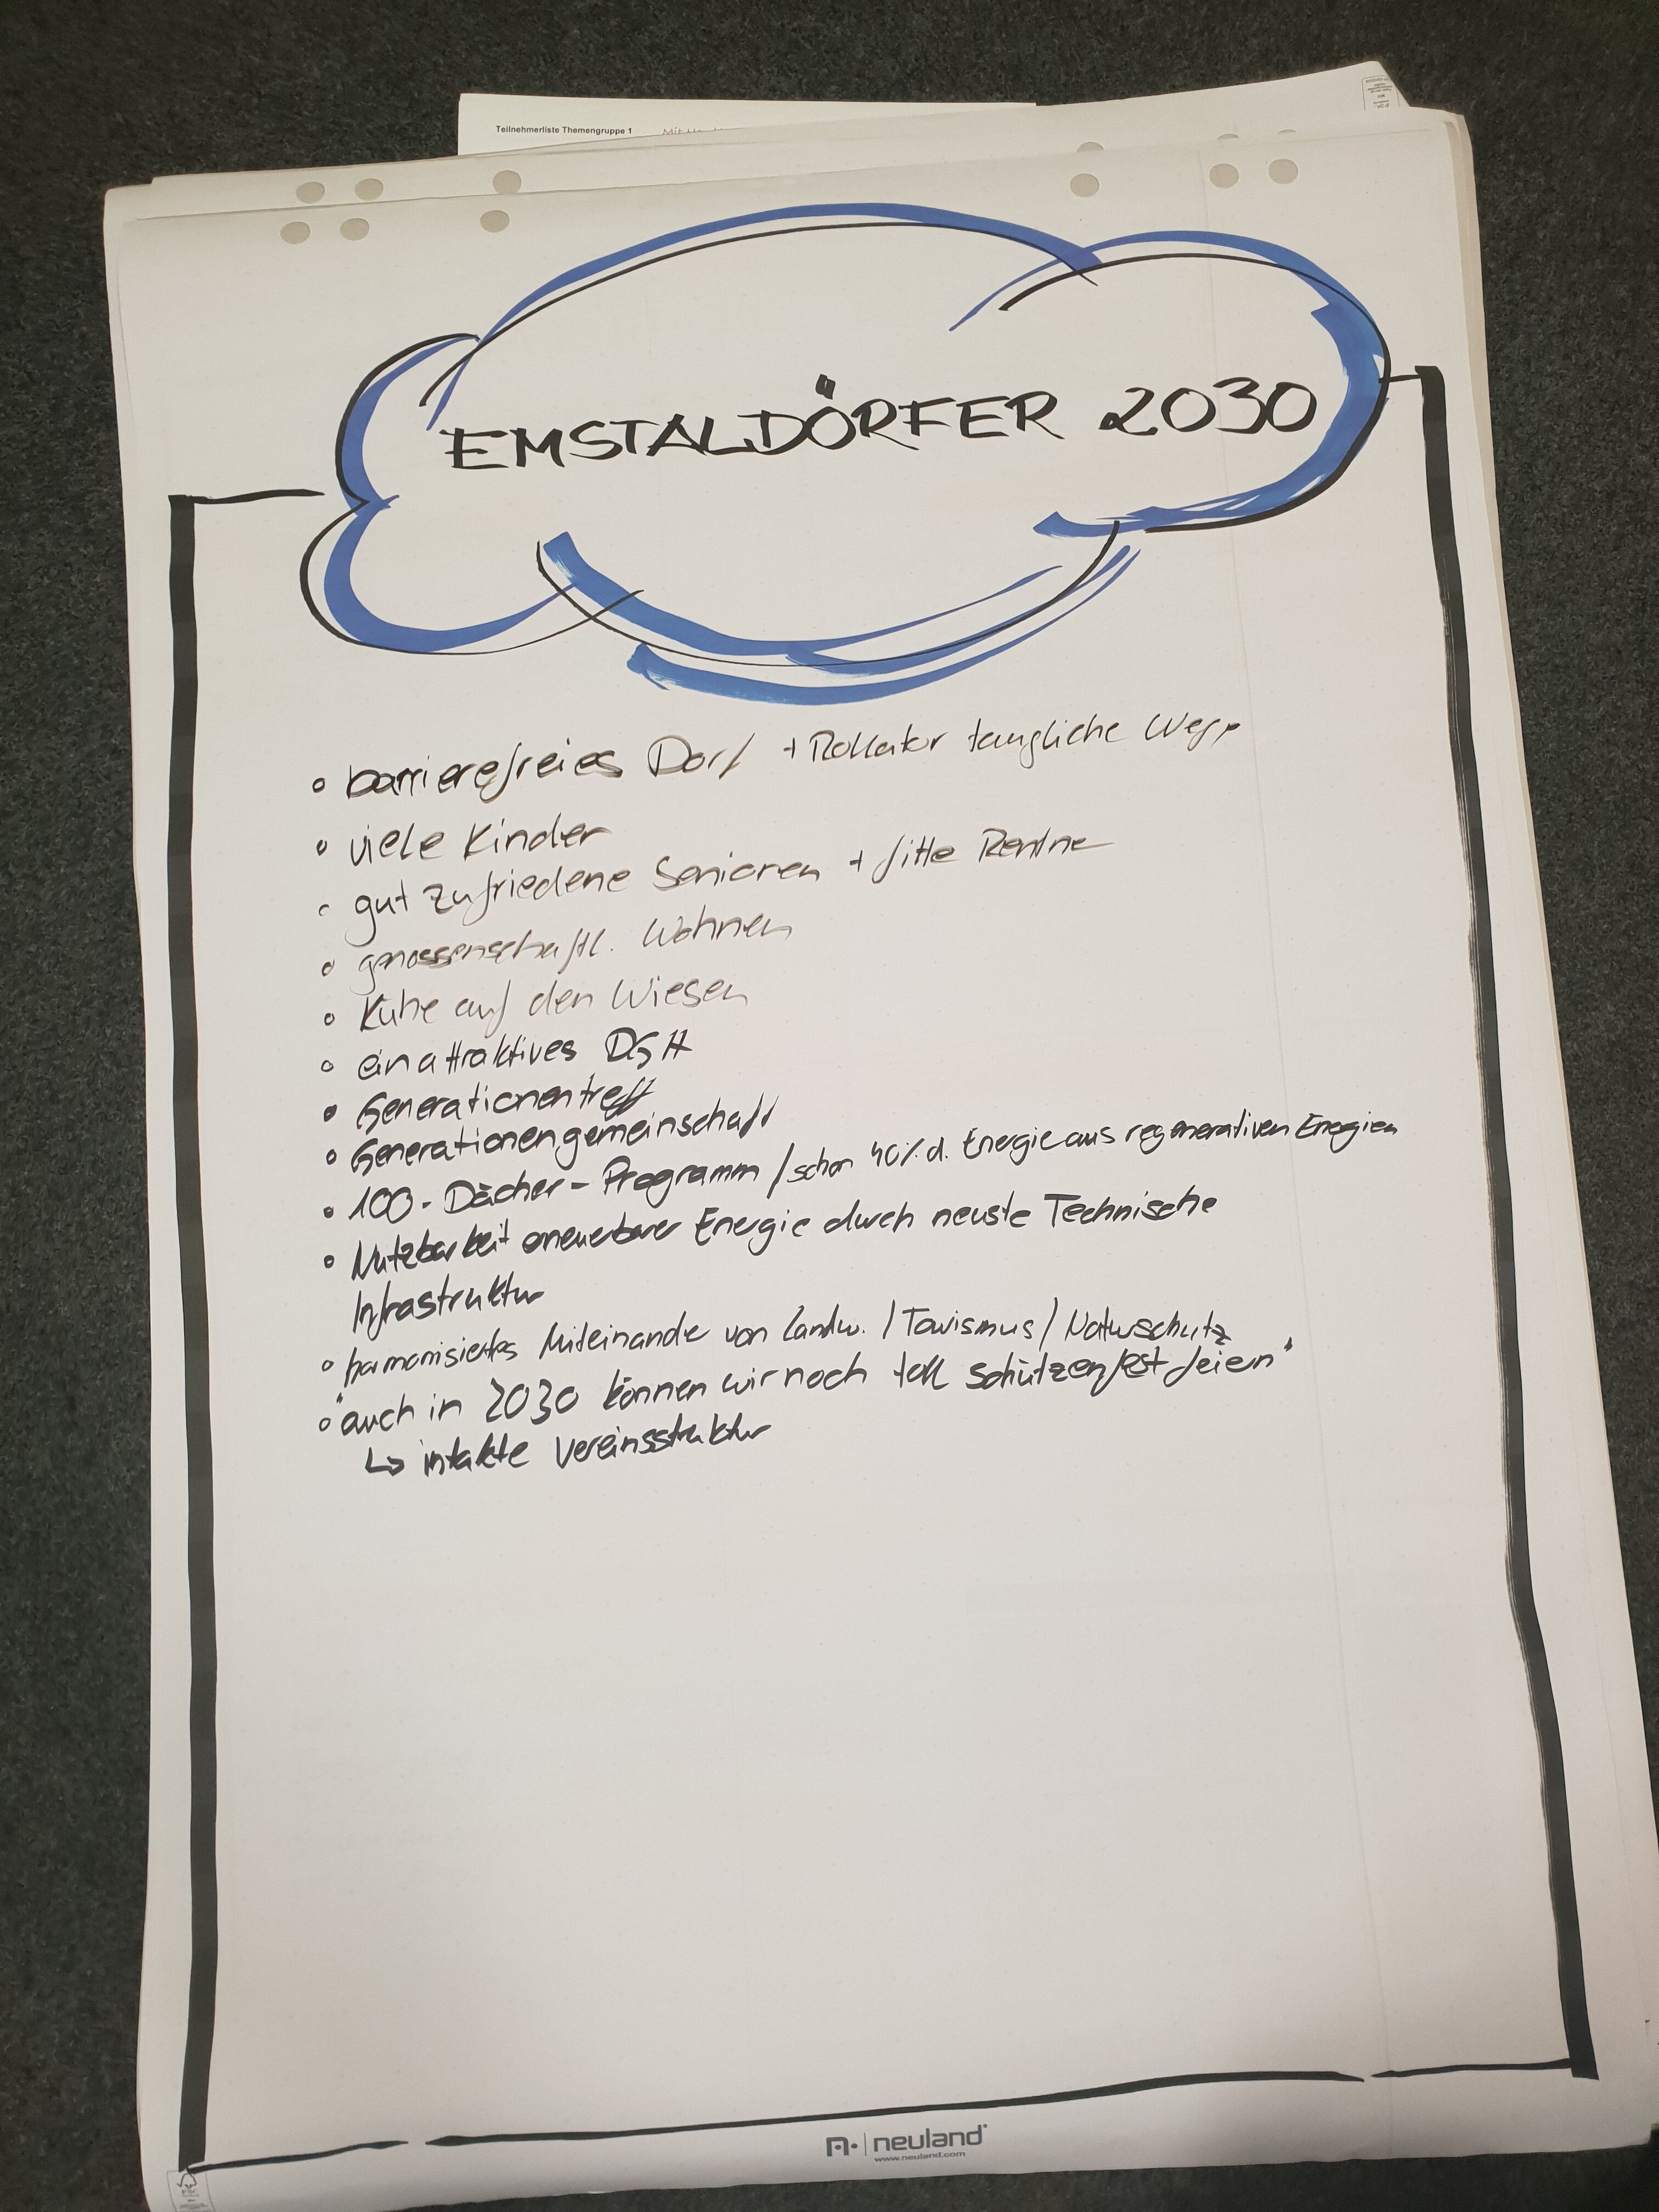 Teilnehmerliste Themengruppe 1
EMSTALDÖRFER 2030
° barrierefreies Dorf + Rollator taugliche Wege
° viele Kinder
° gut zufriedene Senioren + fitte Rentner
° genossenschaftl. Wohnen
° Kühe auf den Wiesen
° ein attraktives DGH
° Generationentreff
° Generationengemeinschaft
° 100-Dächer-Programm / schon 40% d. Energie aus regenerativen Energien
° Nutzbarkeit erneuerbarer Energie durch neuste Technische
Infrastruktur
° harmonisiertes Miteinander von Landw. / Tourismus / Naturschutz
° "auch in 2030 können wir noch toll Schützenfest feiern"
↳ intakte Vereinsstruktur
neuland
www.neuland.com